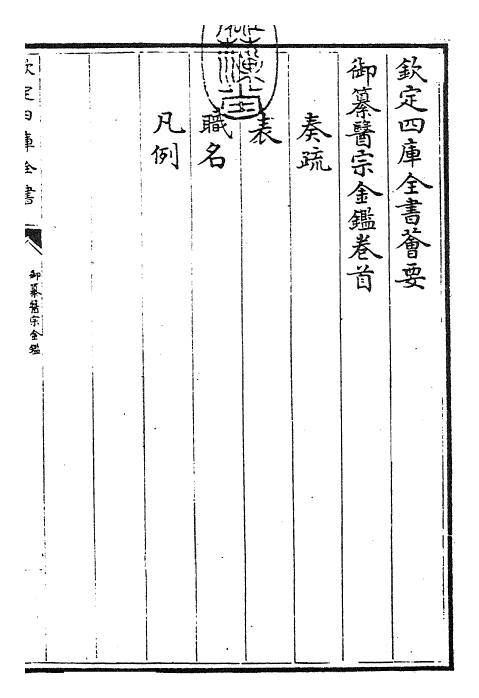 欽定四庫全書薈要
御纂醫宗金鑑卷首
奏疏
表
職名
凡例
欽定四庫全書
御纂醫宗金鑑